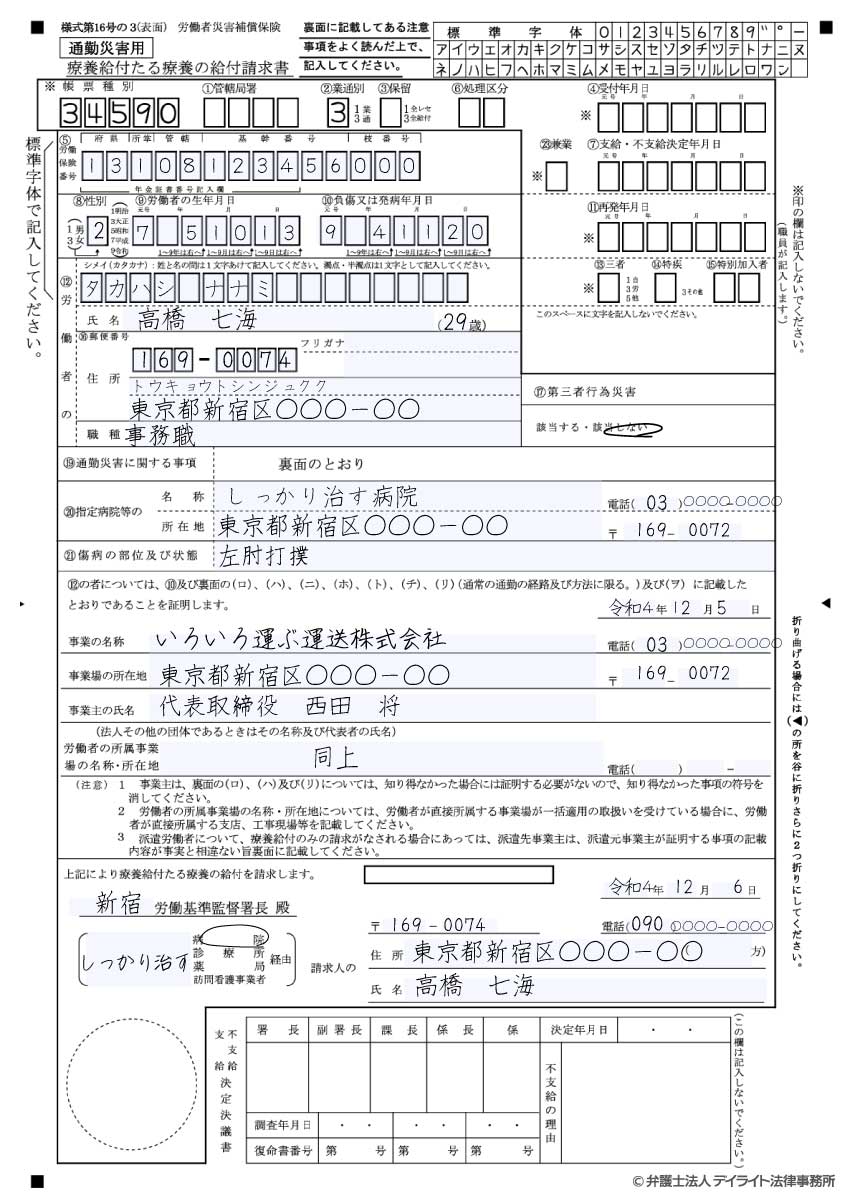 様式第16号の3(表面) 労働者災害補償保険
裏面に記載してある注意
事項をよく読んだ上で、
記入してください。
通勤災害用
療養給付たる療養の給付請求書
標準字体 0 1 2 3 4 5 6 7 8 9 ゛ ゜ ー
アイウエオカキクケコサシスセソタチツテトナニヌ
ネノハヒフヘホマミムメモヤユヨラリルレロワン
※ 帳票種別 ①管轄局署 ②業通別 ③保留 ⑥処理区分 ④受付年月日
34590
3 1業 3通
1全レセ 3全給付
※ 元号 年 月 日
標準字体で記入してください。
⑤労働保険番号 府県 所掌 管轄 基幹番号 枝番号
13108123456000
年金証書番号記入欄
㉓兼業 ⑦支給・不支給決定年月日
※ ※ 元号 年 月 日
⑧性別 ⑨労働者の生年月日 ⑩負傷又は発病年月日
1男 3女 2
1明治 3大正 5昭和 7平成 9令和
元号 年 月 日
7 051013
9 041120
1〜9年は右へ 1〜9月は右へ 1〜9日は右へ
1〜9年は右へ 1〜9月は右へ 1〜9日は右へ
⑪再発年月日
※ 元号 年 月 日
⑫労働者の
シメイ(カタカナ):姓と名の間は1文字あけて記入してください。濁点・半濁点は1文字として記入してください。
タカハシ ナナミ
⑬三者 ⑭特疾 ⑮特別加入者
※ 1自 3労 5他 3その他
氏名 高橋 七海 (29歳)
このスペースに文字を記入しないでください。
⑯郵便番号 169-0074 フリガナ
トウキョウトシンジュクク
住所 東京都新宿区〇〇〇-〇〇
職種 事務職
⑰第三者行為災害
該当する・該当しない
※印の欄は記入しないでください。
(職員が記入します。)
⑲通勤災害に関する事項 裏面のとおり
⑳指定病院等の 名称 しっかり治す病院 電話( 03 )〇〇〇〇-〇〇〇〇
所在地 東京都新宿区〇〇〇-〇〇 〒 169-0072
㉑傷病の部位及び状態 左肘打撲
⑫の者については、⑩及び裏面の(ロ)、(ハ)、(ニ)、(ホ)、(ト)、(チ)、(リ)(通常の通勤の経路及び方法に限る。)及び(ヲ) に記載した
とおりであることを証明します。
令和4年 12月 5日
事業の名称 いろいろ運ぶ運送株式会社 電話( 03 )〇〇〇〇-〇〇〇〇
事業場の所在地 東京都新宿区〇〇〇-〇〇 〒 169-0072
事業主の氏名 代表取締役 西田 将
(法人その他の団体であるときはその名称及び代表者の氏名)
労働者の所属事業
場の名称・所在地 同上 電話( ) -
(注意) 1 事業主は、裏面の(ロ)、(ハ)及び(リ)については、知り得なかった場合には証明する必要がないので、知り得なかった事項の符号を
消してください。
2 労働者の所属事業場の名称・所在地については、労働者が直接所属する事業場が一括適用の取扱いを受けている場合に、労働
者が直接所属する支店、工事現場等を記載してください。
3 派遣労働者について、療養給付のみの請求がなされる場合にあっては、派遣先事業主は、派遣元事業主が証明する事項の記載
内容が事実と相違ない旨裏面に記載してください。
折り曲げる場合には(◀)の所を谷に折りさらに2つ折りにしてください。
上記により療養給付たる療養の給付を請求します。
令和4年 12月 6日
新宿 労働基準監督署長 殿
〒 169-0074 電話( 090 )〇〇〇〇-〇〇〇〇
しっかり治す 病院 診療所 薬局 訪問看護事業者 経由
請求人の 住所 東京都新宿区〇〇〇-〇〇 方)
氏名 高橋 七海
支不支給給決定決議書
署長 副署長 課長 係長 係 決定年月日 ・ ・
不支給の理由
調査年月日 ・ ・ ・ ・ ・ ・
復命書番号 第 号 第 号 第 号
(この欄は記入しないでください。)
© 弁護士法人 デイライト法律事務所